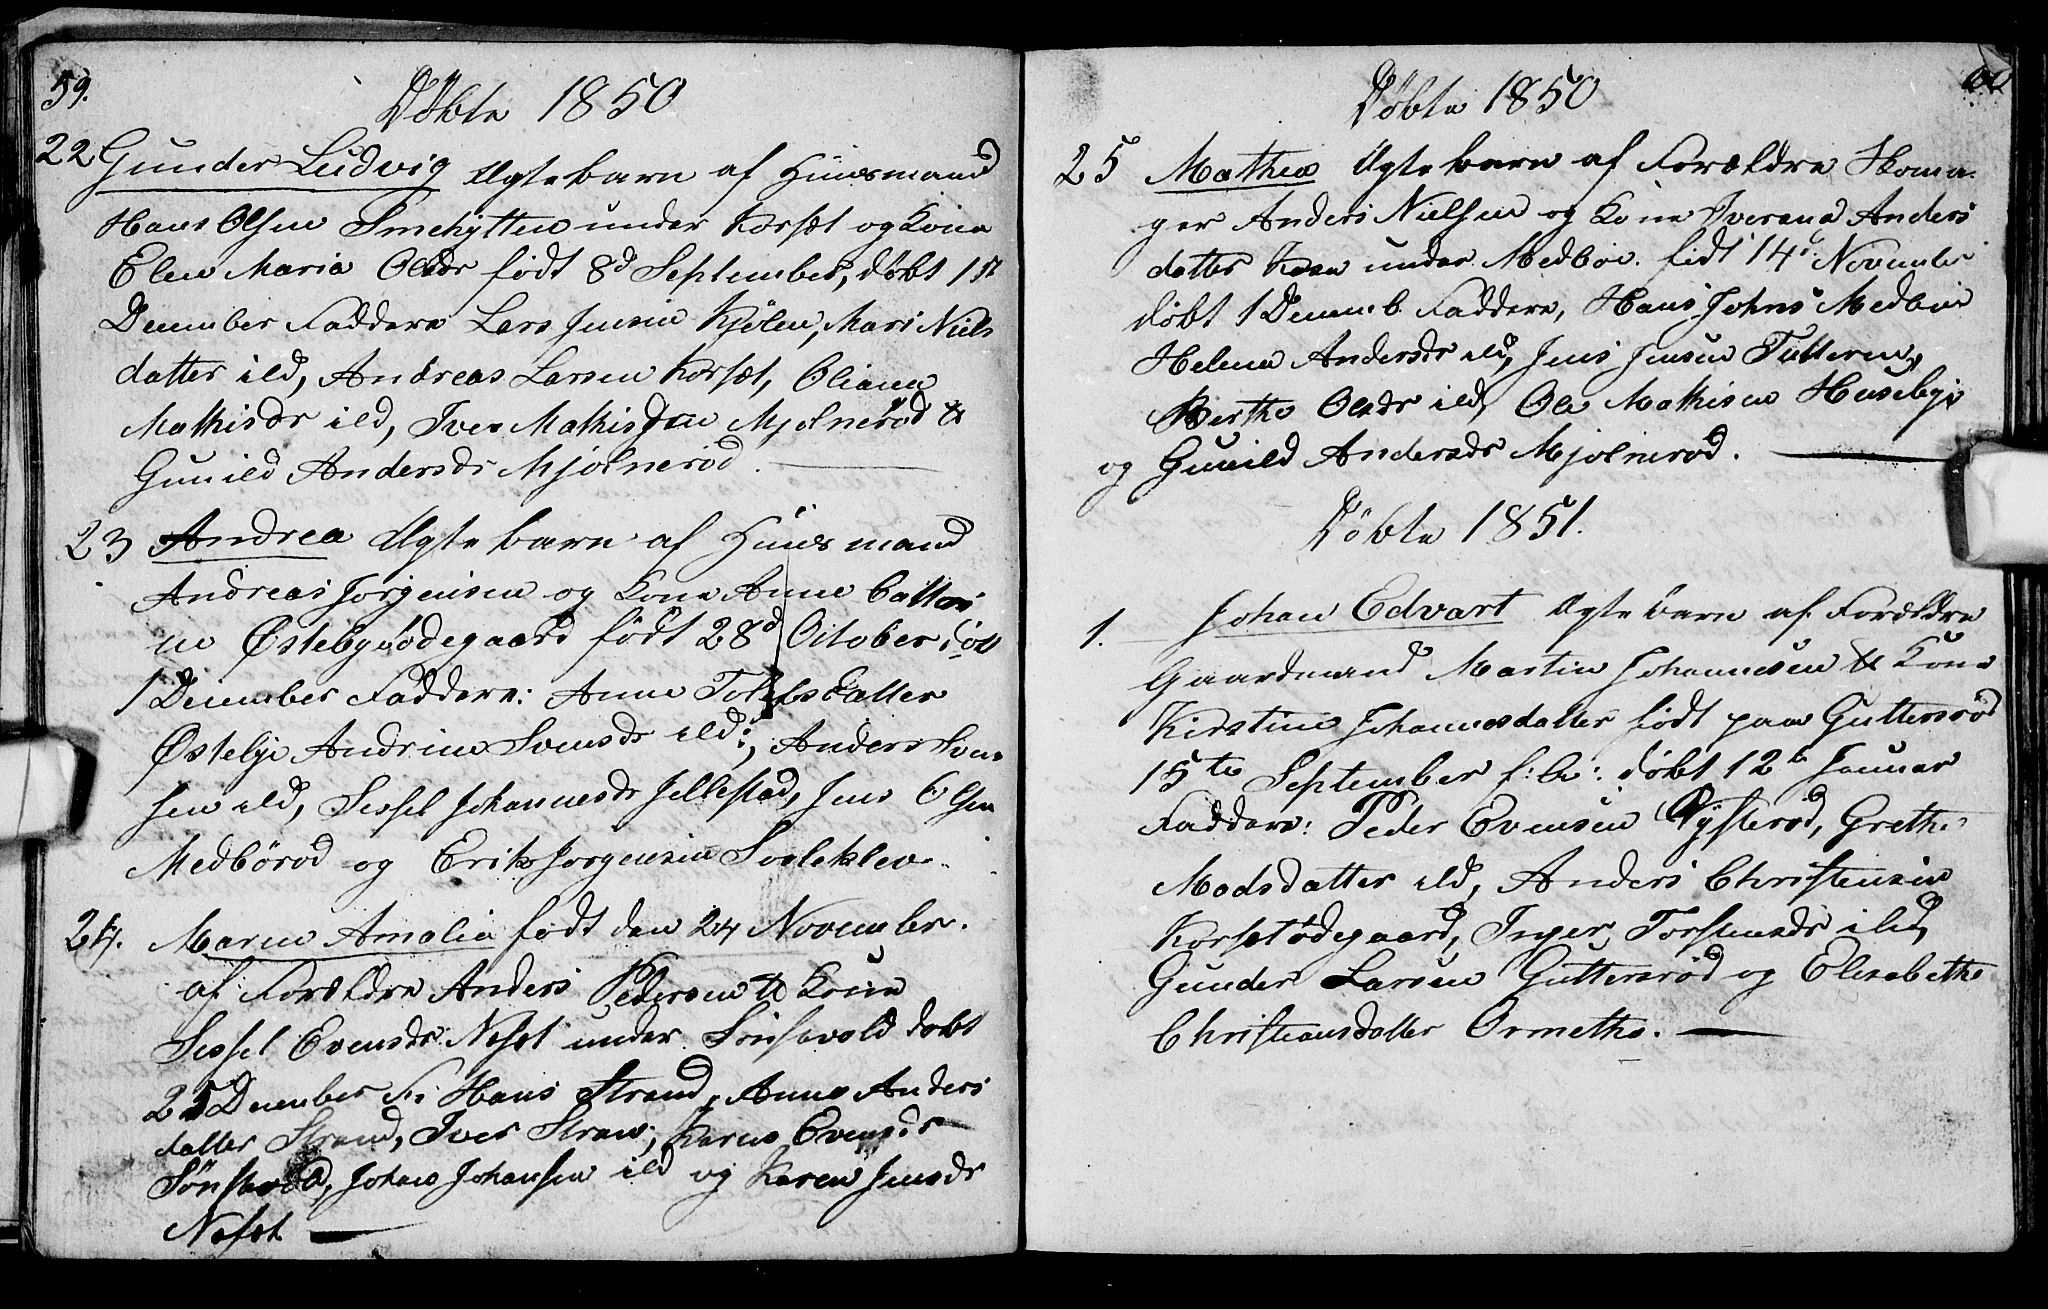 59.
Döbte 1850
22 Gunder Ludvig Ægtebarn af Huusmand
Hans Olsen Smehytten under Korsæt og Kone
Elen Maria Olsdr födt 8d September, döbt 1st
December Faddere Lars Jensen Kjölen, Mari Niels
datter ild, Andreas Larsen Korsæt, Oliana
Mathisdr ild, Iver Mathisen Mjölneröd &
Gunild Andersdr Mjölneröd.
23 Andrea Ægtebarn af Huusmand
Andreas Jorgensen og Kone Anne Cathri
ne Östebyödegaard födt 28d October döb
1 December Faddere: Anne Tolefsdatter
Östebye Andrine Svensdr ild:, Anders Sven
sen ild, Sissel Johannesdr Jellestad, Jens Olsen
Medböröd og Erik Jorgensen Soleklev.
24. Maren Amalia födt den 24 November.
af Forældre Anders Pedersen & Kone
Sissel Evensdr Nesset under Sönsevold döbt
25 December F: Hans Strand, Anne Anders
datter Strand, Iver Strand, Karen Evensdr
Sönsevold, Johan Johansen ild og Karen Jensdr
Neset
60
Döbte 1850
25 Mathea Ægtebarn af Forældre Skoma-
ger Anders Nielsen og Kone Iverana Anders
datter under Medboe. födt 14d November
döbt 1 Decemb. Faddere, Hans Johns Medboe
Helena Andersdr ild, Jens Jensen Tutteren,
Berthe Olsdr ild, Ole Mathisen Husebye
og Gunild Andersdr Mjolneröd.
Döbte 1851.
1. Johan Edvart Ægtebarn af Forældre
Gaardmand Martin Johannesen & Kone
Kirstine Johannesdatter födt paa Gutteröd
15te September f: A: döbt 12te Januar
Faddere: Peder Evensen Dysteröd, Grethe
Madsdatter ild, Anders Christensen
Korsetödegaard, Inger Torstensdr ild,
Gunder Larsen Gutteröd og Elisabeth
Christiansdatter Ormethe.